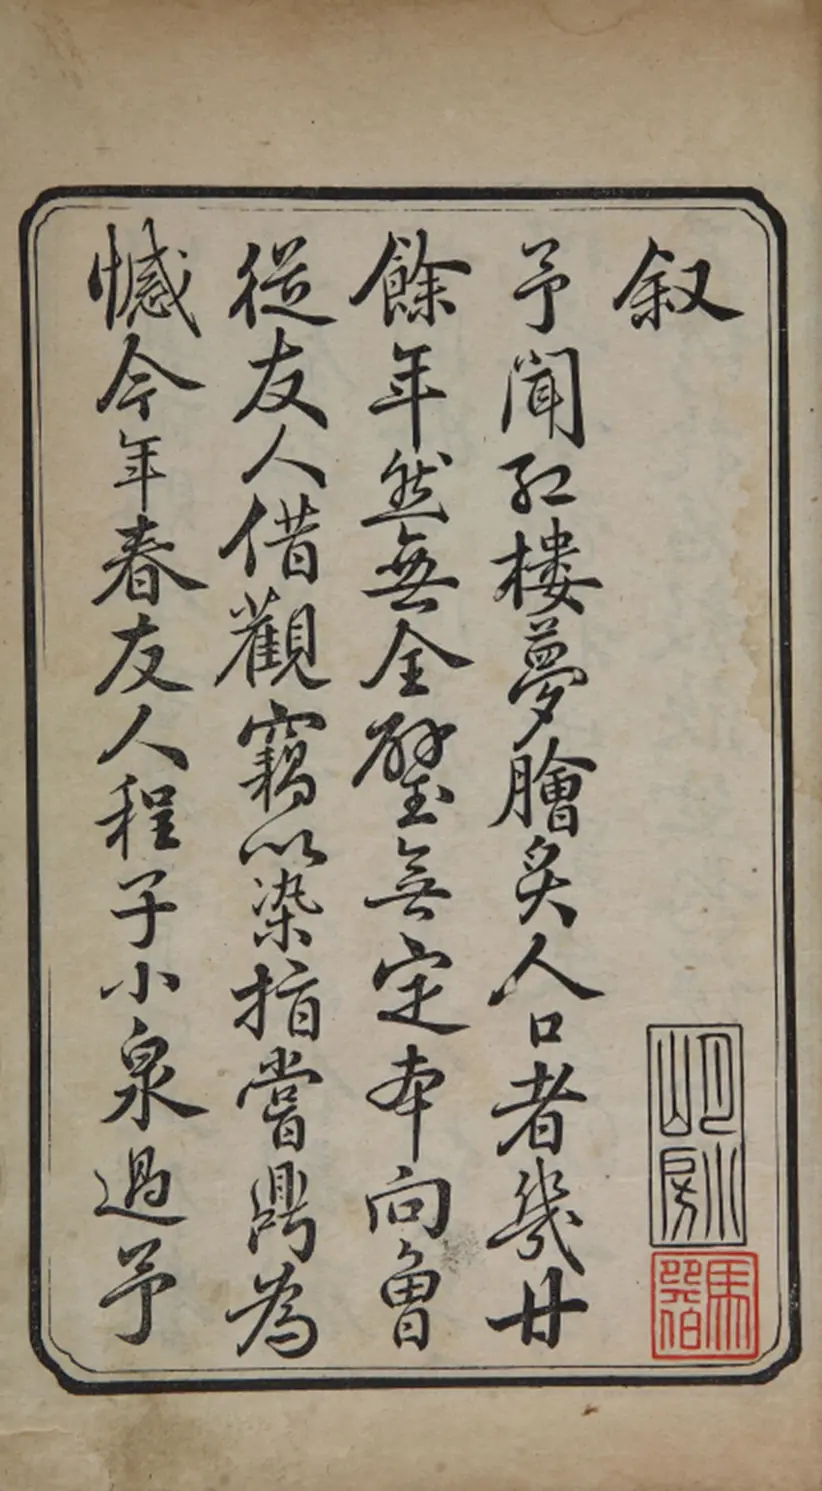 叙
予聞紅樓夢膾炙人口者幾廿
餘年然無全璧無定本向曾
從友人借觀竊以染指嘗鼎為
憾今年春友人程子小泉過予
月小山房